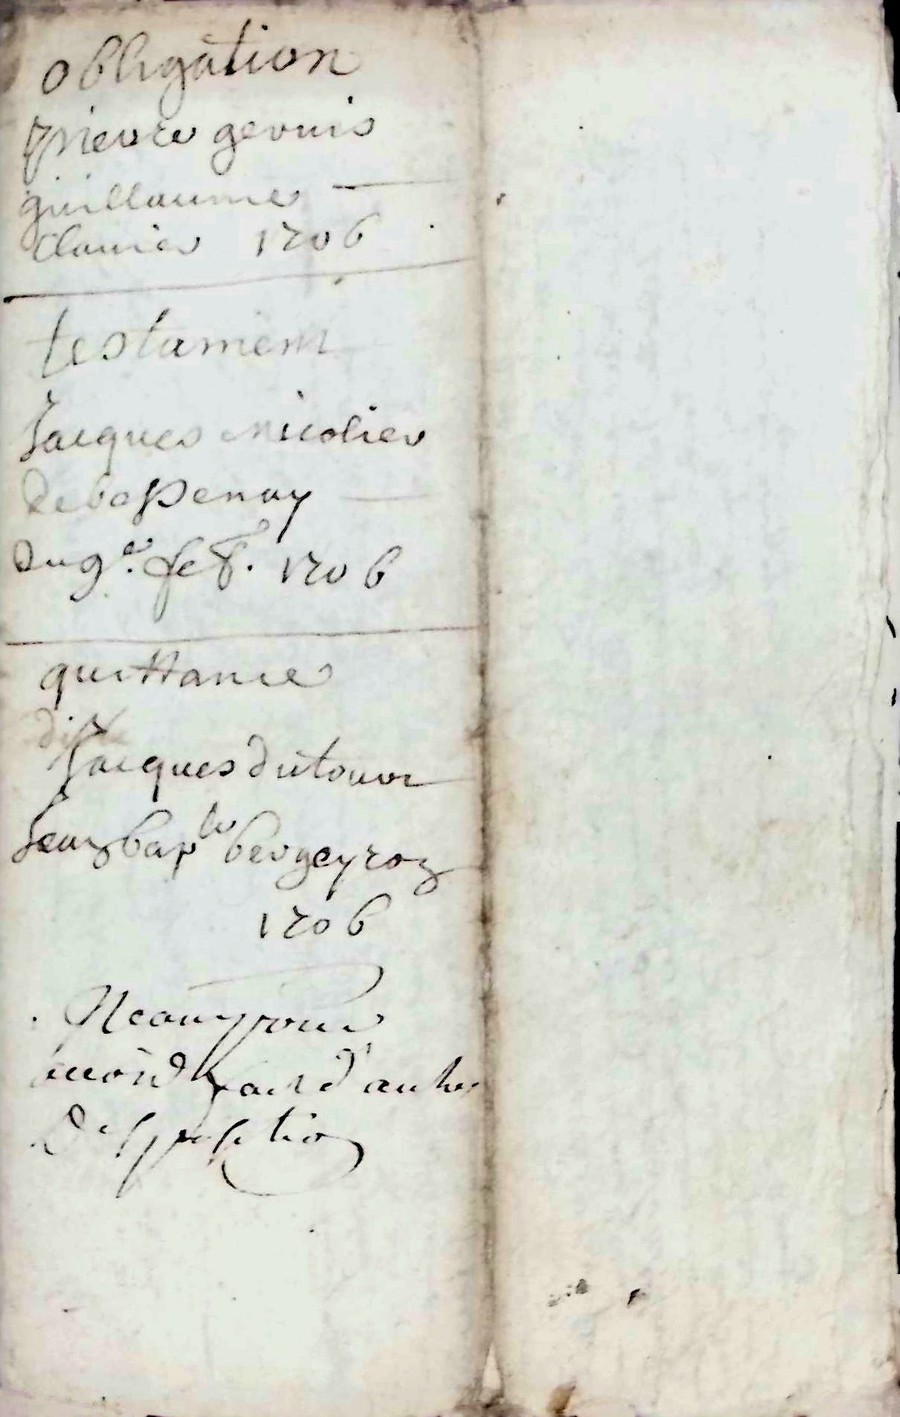 obligation
pierre gervais
guillaume —
Clavier 1706
testament
Jacques nicolier
de bassenay —
du 9e. feb. 1706
quittance
Jacques dutour
Jean bapte bergeyron
1706
fait d'autre